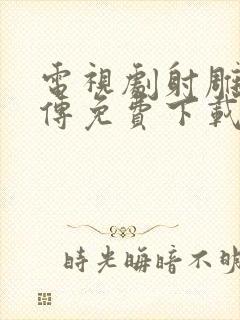 電視劇射雕
傳免費下載
時光晦暗不明